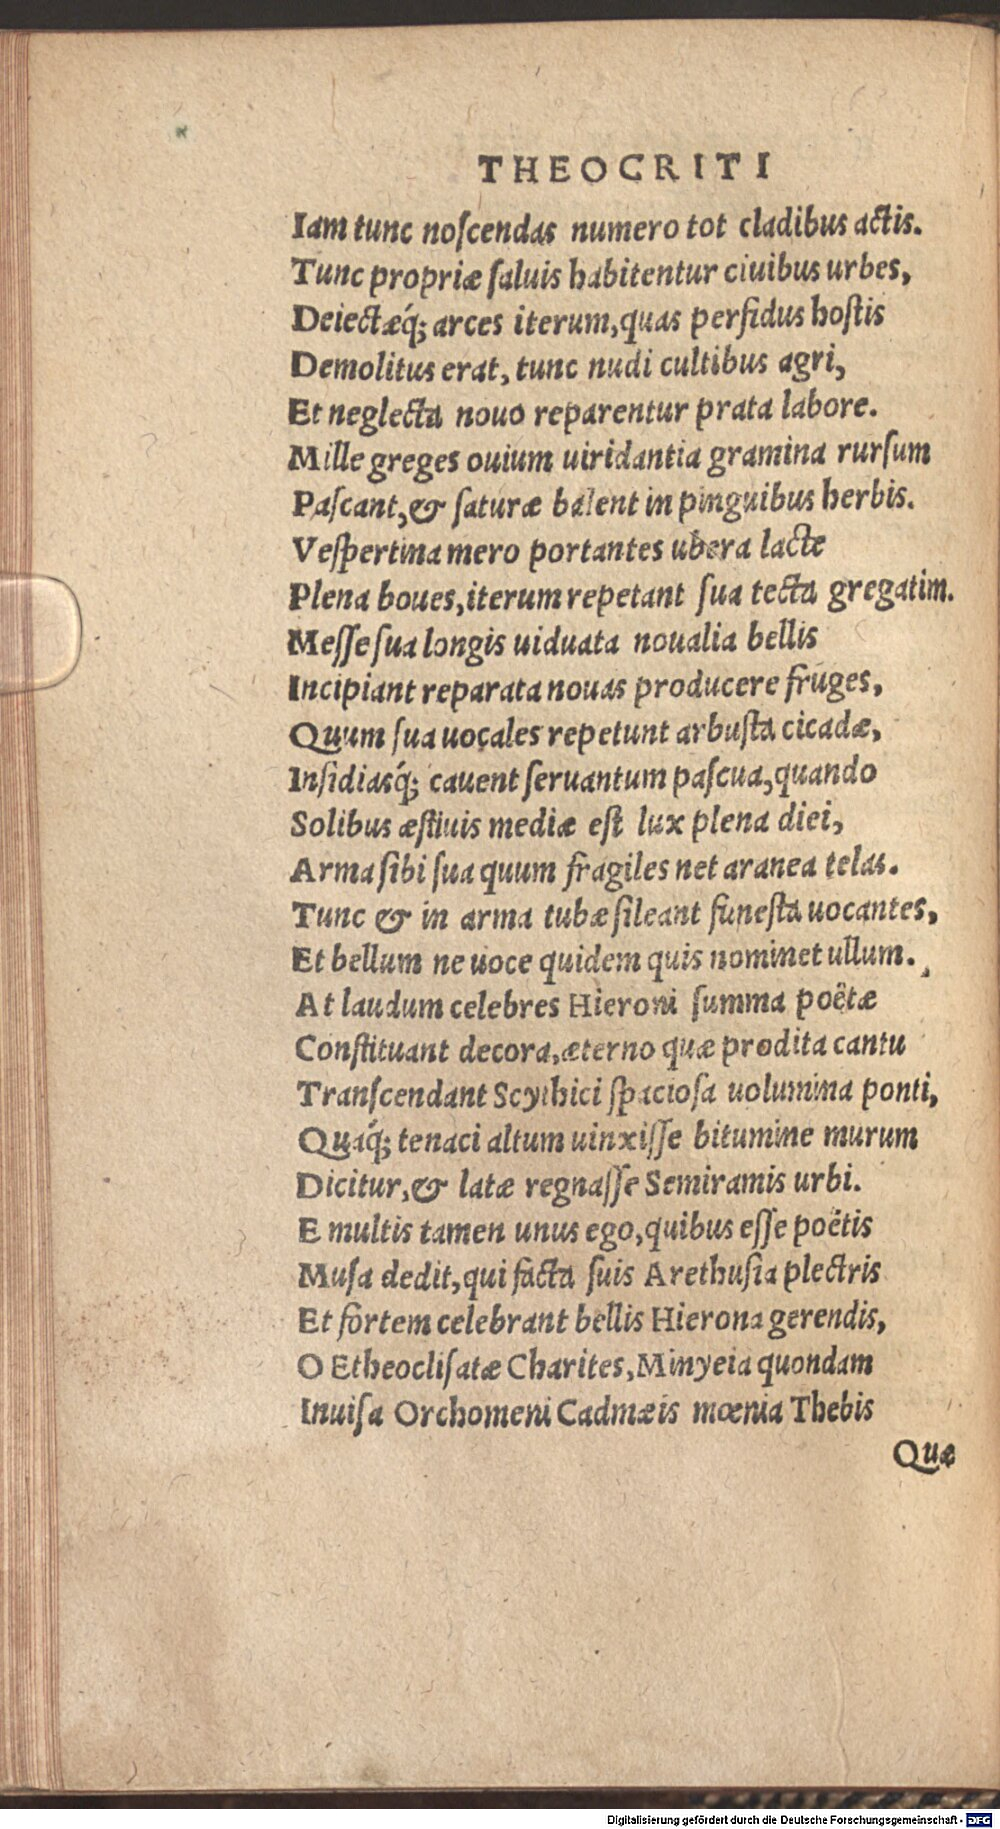 THEOCRITI
Iam tunc noſcendas numero tot cladibus actis.
Tunc propriæ ſaluis habitentur ciuibus urbes,
Deiectæq́; arces iterum, quas perfidus hoſtis
Demolitus erat, tunc nudi cultibus agri,
Et neglecta nouo reparentur prata labore.
Mille greges ouium uiridantia gramina rurſum
Paſcant, & ſaturæ balent in pinguibus herbis.
Veſpertina mero portantes ubera lacte
Plena boues, iterum repetant ſua tecta gregatim.
Meſſe ſua longis uiduata noualia bellis
Incipiant reparata nouas producere fruges,
Quum ſua uocales repetunt arbuſta cicadæ,
Inſidiasq́; cauent ſeruantum paſcua, quando
Solibus æſtiuis mediæ eſt lux plena diei,
Arma ſibi ſua quum fragiles net aranea telas.
Tunc & in arma tubæ ſileant funeſta uocantes,
Et bellum ne uoce quidem quis nominet ullum.
At laudum celebres Hieroni ſumma poëtæ
Conſtituant decora, æterno quæ prodita cantu
Tranſcendant Scythici ſpacioſa uolumina ponti,
Quaq́; tenaci altum uinxiſſe bitumine murum
Dicitur, & latæ regnaſſe Semiramis urbi.
E multis tamen unus ego, quibus eſſe poëtis
Muſa dedit, qui facta ſuis Arethuſia plectris
Et fortem celebrant bellis Hierona gerendis,
O Etheocliſatæ Charites, Minyeia quondam
Inuiſa Orchomeni Cadmæis mœnia Thebis
Quæ
Digitalisierung gefördert durch die Deutsche Forschungsgemeinschaft - DFG